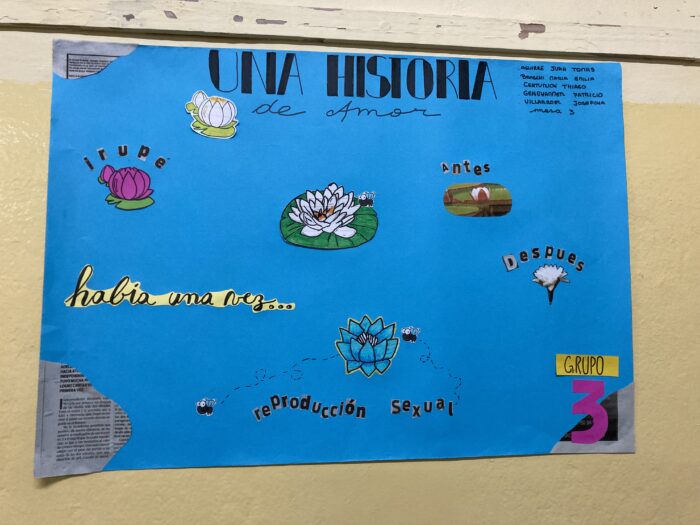 UNA HISTORIA
de Amor
AGUIRRE JUAN TOMAS
MARIA EMILIA
CENTURION THIAGO
PATRICIO
VILLAROEL JOSEFINA
mesa 3
irupé
Antes
Despues
había una vez...
GRUPO
3
reproducción sexual